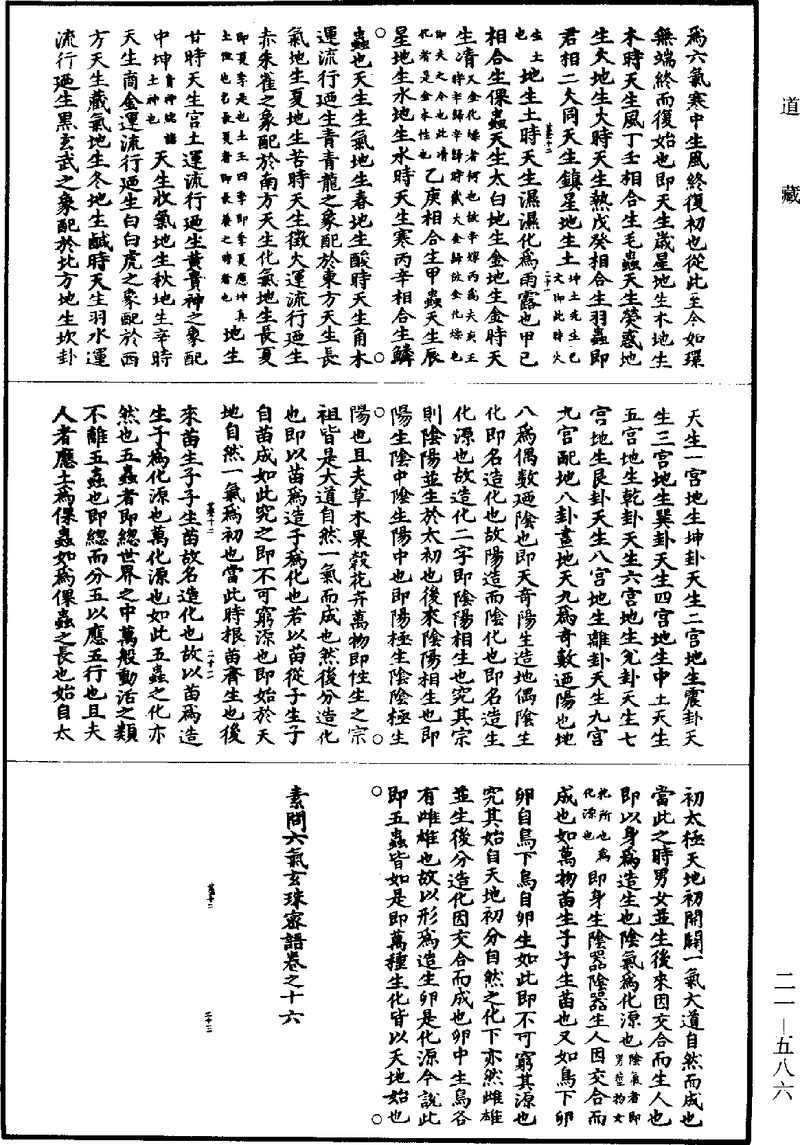 道藏
為六氣寒中生風終復初也從此至今如環
無端終而復始也即天生歲星地生木地生
木時天生風丁壬相合生毛蟲天生熒惑地
生火地生火時天生熱戊癸相合生羽蟲即
君相二火同天生鎮星地生土
地生土時天生濕濕化為雨露也甲己
相合生倮蟲天生太白地生金地生金時天
生凊
乙庚相合生甲蟲天生辰
星地生水地生水時天生寒丙辛相合生鱗
蟲也天生生氣地生春地生酸時天生角木
運流行廼生青青龍之象配於東方天生長
氣地生夏地生苦時天生徵火運流行廼生
赤朱雀之象配於南方天生化氣地生長夏
地生
甘時天生宮土運流行廼生黃黃神之象配
中坤
天生收氣地生秋地生辛時
天生商金運流行廼生白白虎之象配於西
方天生藏氣地生冬地生鹹時天生羽水運
流行廼生黑玄武之象配於北方地生坎卦
天生一宮地生坤卦天生二宮地生震卦天
生三宮地生巽卦天生四宮地生中土天生
五宮地生乾卦天生六宮地生兌卦天生七
宮地生艮卦天生八宮地生離卦天生九宮
九宮配地八卦畫地天九為奇數廼陽也地
八為偶數廼陰也即天奇陽生造地偶陰生
化即名造化也故陽造而陰化也即名造生
化源也故造化二字即陰陽相生也究其宗
則陰陽並生於太初也後來陰陽相生也即
陽生陰中陰生陽中也即陽極生陰陰極生
陽也且夫草木果穀花卉萬物即性生之宗
祖皆是大道自然一氣而成也然後分造化
也即以苗為造子為化也若以苗從子生子
自苗成如此究之即不可窮源也即始於天
地自然一氣為初也當此時根苗齊生也後
來苗生子子生苗故名造化也故以苗為造
生子為化源也萬化源也如此五蟲之化亦
然也五蟲者即總世界之中萬般動活之類
不離五蟲也即總而分五以應五行也且夫
人者應土為倮蟲如為倮蟲之長也始自太
初太極天地初開闢一氣大道自然而成也
當此之時男女並生後來因交合而生人也
即以身為造生也陰氣為化源也
即身生陰器陰器生人因交合而
成也如萬物苗生子子生苗也又如鳥下卵
卵自鳥下鳥自卵生如此即不可窮其源也
究其始自天地初分自然之化下亦然雌雄
並生後分造化因交合而成也卵中生鳥各
有雌雄也故以形為造生卵是化源今說此
即五蟲皆如是即萬種生化皆以天地始也
素問六氣玄珠密語卷之十六
二一—五八六